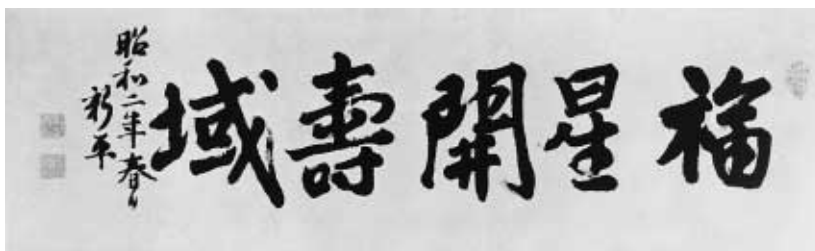 福星開壽域
昭和二年春日
新平